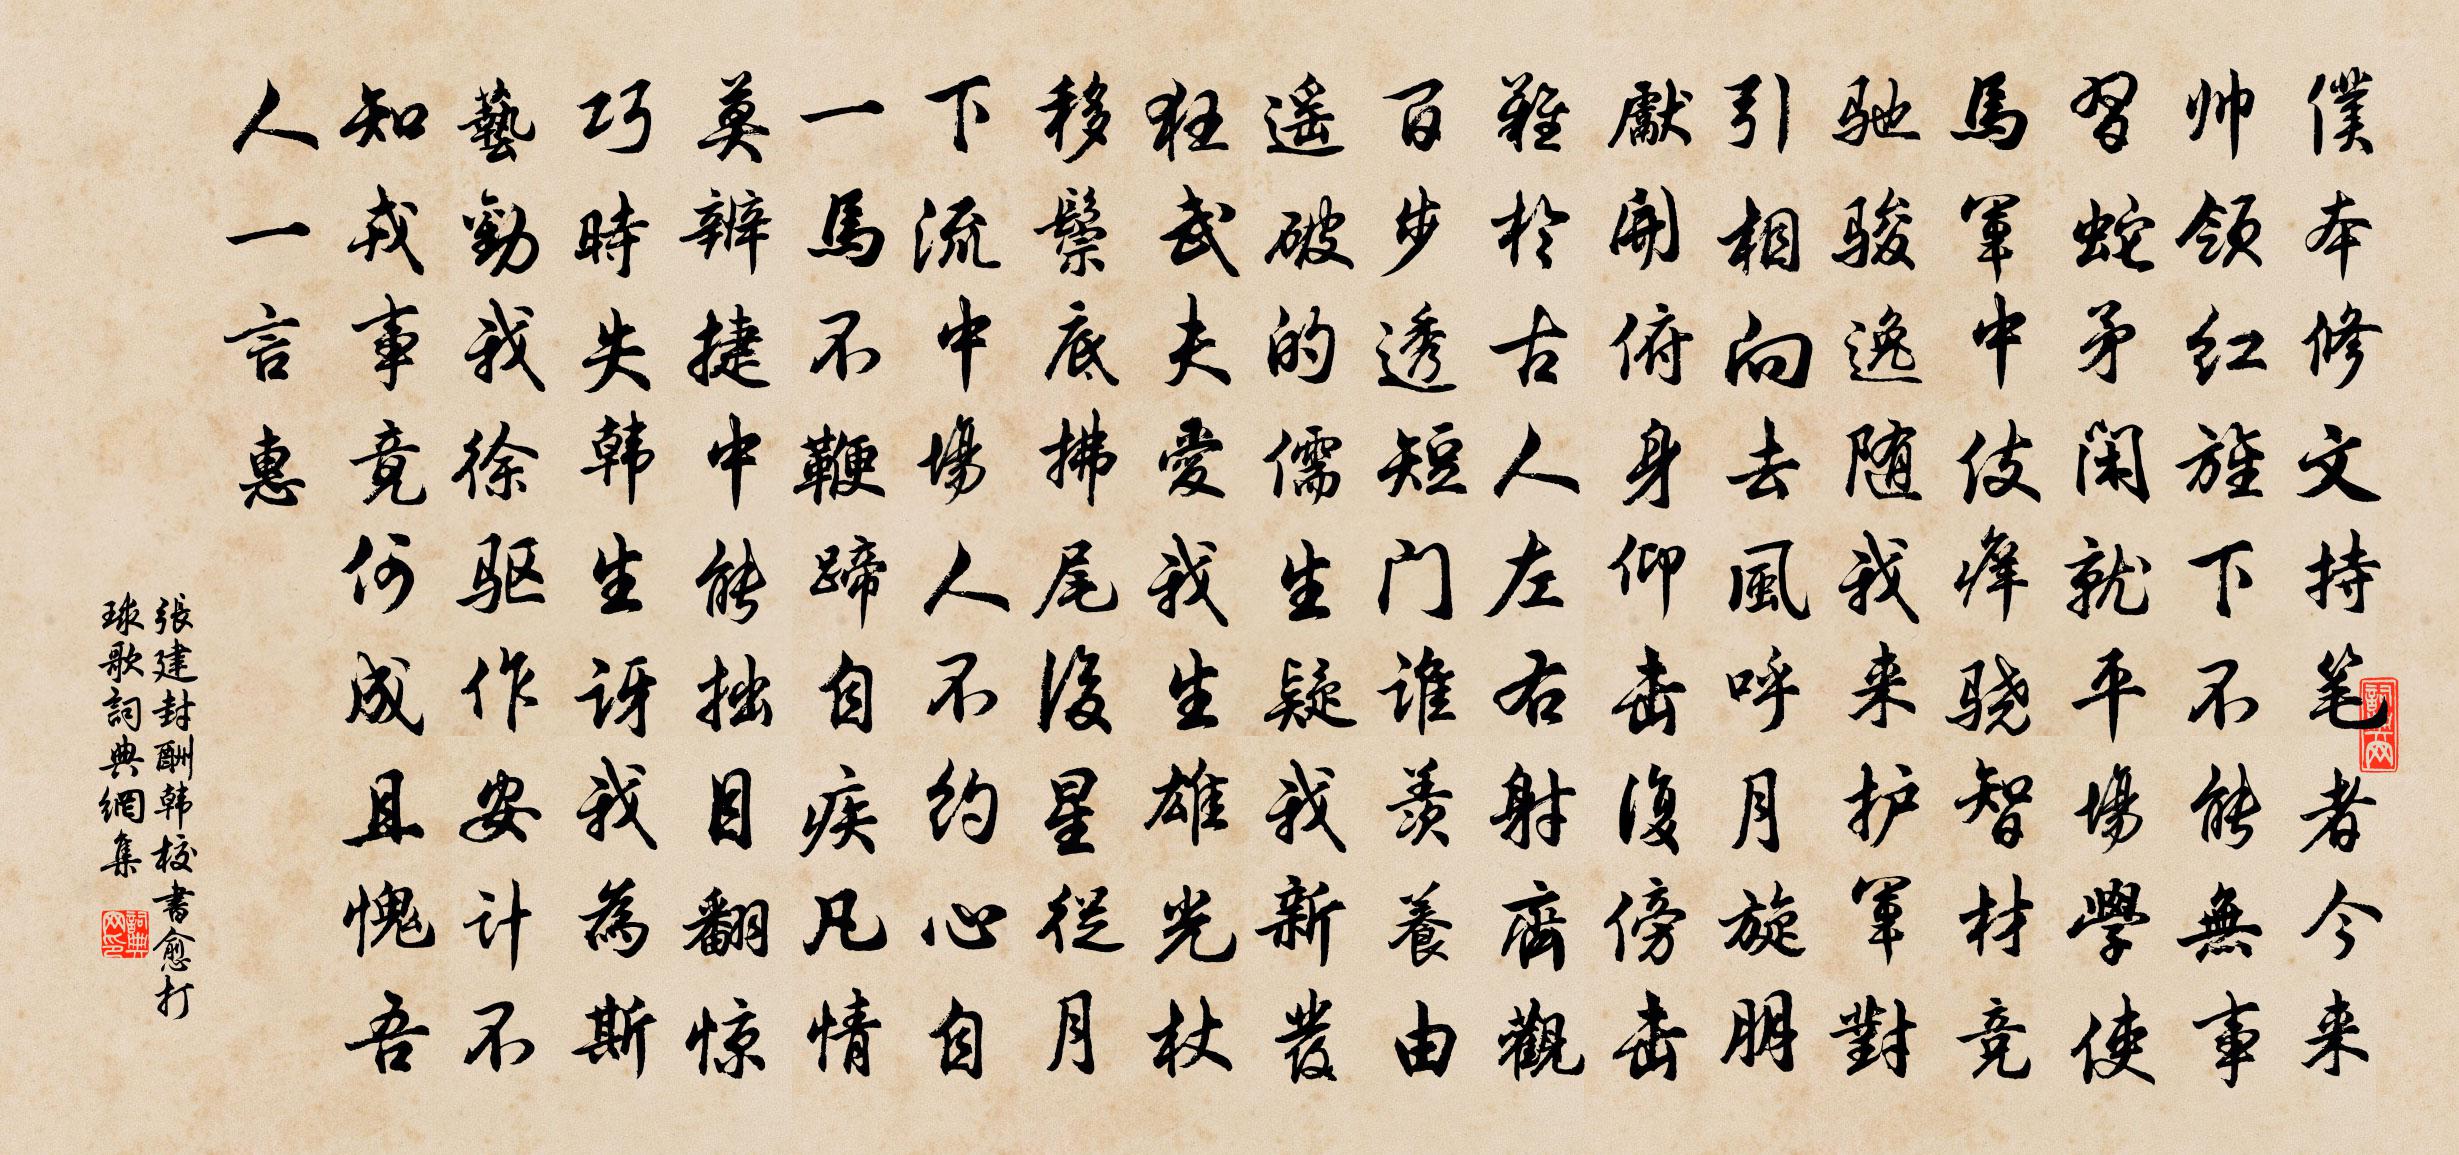 僕本修文持笔者今来
帅领红旌下不能無事
習蛇矛闲就平場學使
馬軍中伎痒骁智材竞
驰骏逸随我来护軍對
引相向去風呼月旋朋
獻開俯身仰击復傍击
難於古人左右射齊觀
百步透短门谁羨養由
遥破的儒生疑我新發
狂武夫愛我生雄光杖
移鬃底拂尾後星從月
下流中場人不约心自
一馬不鞭蹄自疾凡情
莫辨捷中能拙目翻惊
巧時失韩生讶我為斯
藝勸我徐驱作安计不
知戎事竟何成且愧吾
人一言惠
張建封酬韩校書愈打
球歌詞典網集